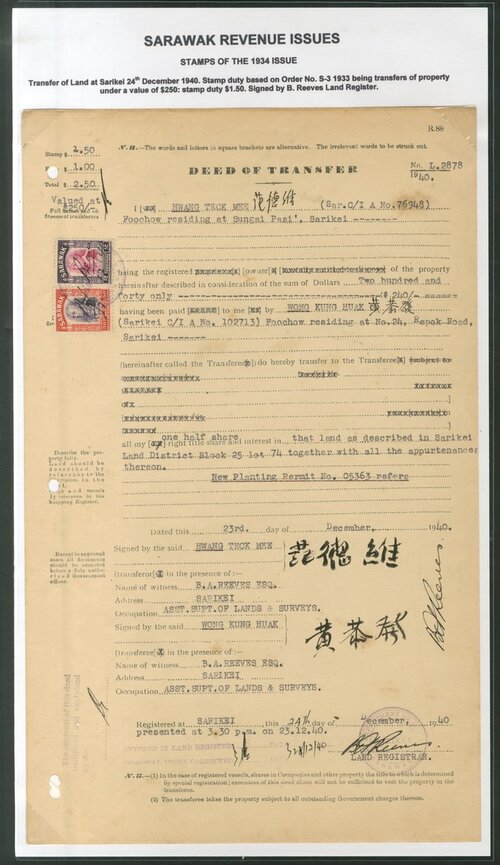 SARAWAK REVENUE ISSUES
STAMPS OF THE 1934 ISSUE
Transfer of Land at Sarikei 24th December 1940. Stamp duty based on Order No. S-3 1933 being transfers of property
under a value of $250: stamp duty $1.50. Signed by B. Reeves Land Register.
R.88
Stamp $ 1.50
N.B.—The words and letters in square brackets are alternative. The irrelevant words to be struck out.
F. $ 1.00
DEED OF TRANSFER
No. L.2878
Total $ 2.50
1940.
Valued at
$250/-
I HWANG TECK MEE 范德維 (Sar.C/I A No.76948)
Foochow residing at Sungai Pasi', Sarikei --------
SARAWAK
being the registered [owner] of the property
hereinafter described in consideration of the sum of Dollars Two hundred and
forty only ($ 240/-
SARAWAK
having been paid to me by WONG KUNG HUAK 黃恭發
(Sarikei C/I A No. 102713) Foochow residing at No.24, Repok Road,
Sarikei -------
(hereinafter called the Transferee) do hereby transfer to the Transferee [subject to
all my right title share and interest in that land as described in Sarikei
one half share
Land District Block 25 lot 74 together with all the appurtenances
thereon.
New Planting Permit No. 05363 refers
Describe the property fully.
Land should be described by reference to the
Dated this 23rd. day of December, 1940.
Signed by the said HWANG TECK MEE 范德維
Except in approved cases all documents should be executed before a duly authorized Government officer.
(transferor) in the presence of :—
Name of witness B.A.REEVES ESQ.
Address SARIKEI
Occupation ASST.SUPT.OF LANDS & SURVEYS.
Signed by the said WONG KUNG HUAK 黃恭發
(transferee) in the presence of :—
Name of witness B.A.REEVES ESQ.
Address SARIKEI
Occupation ASST.SUPT.OF LANDS & SURVEYS.
Registered at SARIKEI this 24th day of December, 1940
presented at 3.30 p.m. on 23.12.40.
ENTERED IN LAND REGISTER
LAND REGISTRAR.
N.B.—(1) In the case of registered vessels, shares in Companies and other property the title to which is determined
by special registration; execution of this deed alone will not be sufficient to vest the property in the
transferee.
(2) The transferee takes the property subject to all outstanding Government charges thereon.